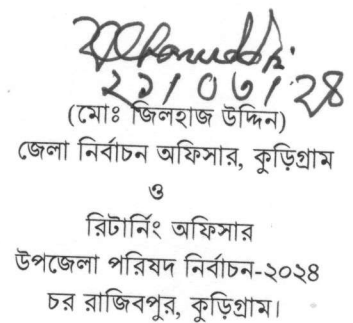 (মোঃ জিলহাজ উদ্দিন)
জেলা নির্বাচন অফিসার, কুড়িগ্রাম
ও
রিটার্নিং অফিসার
উপজেলা পরিষদ নির্বাচন-২০২৪
চর রাজিবপুর, কুড়িগ্রাম।